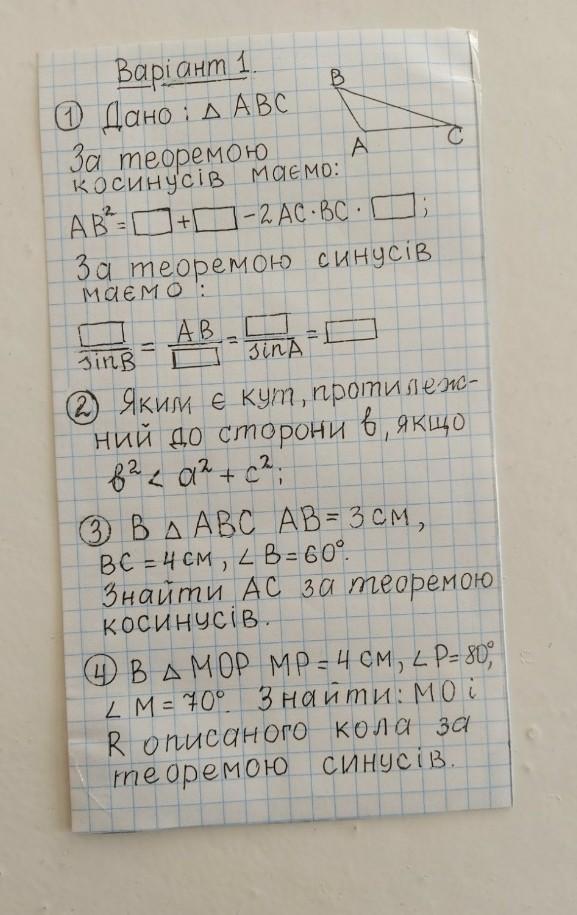 Варіант 1.
① Дано: △ ABC
B
A
C
За теоремою
косинусів маємо:
AB² = □ + □ - 2AC·BC · □ ;
За теоремою синусів
маємо:
□/sinB = AB/□ = □/sinA = □
② Яким є кут, протилеж-
ний до сторони в, якщо
в² < a² + c²;
③ В △ ABC AB = 3 см,
BC = 4 см, ∠B = 60°.
Знайти AC за теоремою
косинусів.
④ В △ MOP MP = 4 см, ∠P = 80°,
∠ M = 70°. Знайти: MO і
R описаного кола за
теоремою синусів.